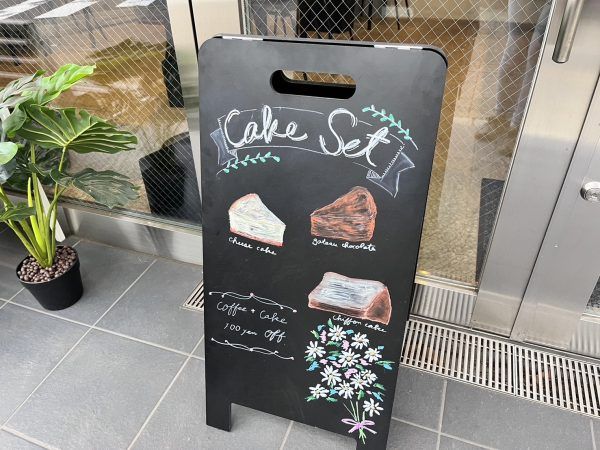 Cake Set
cheese cake
gateau chocolate
chiffon cake
Coffee + Cake
100 yen off.